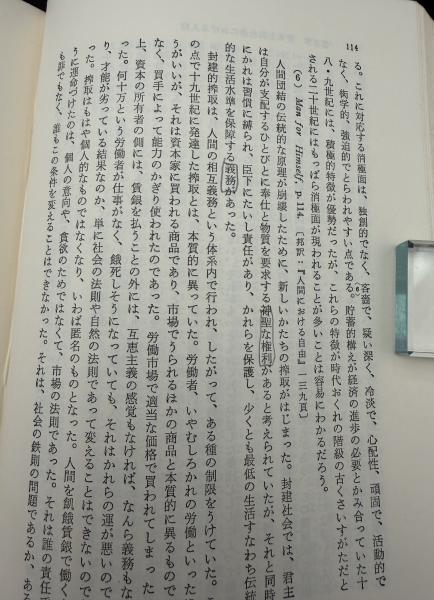 114
る。これに対応する消極面は、独創的でなく、吝嗇で、疑い深く、冷淡で、心配性、頑固で、活動的で
なく、衒学的、強迫的でとらわれやすい点である。(6)貯蓄的構えが経済の進歩の必要とかみ合っていた十
八・九世紀には、積極的特徴が優勢だったが、これらの特徴が時代おくれの階級の古くさいすがただと
される二十世紀にはもっぱら消極面が現われることが多いことは容易にわかるだろう。
(6) Man for Himself, p. 114. 〔邦訳:『人間における自由』一三九頁〕
人間団結の伝統的な原理が崩壊したために、新しいかたちの搾取がはじまった。封建社会では、君主
は自分が支配するひとびとに奉仕と物質を要求する神聖な権利があると考えられていたが、それと同時
にかれは習慣に縛られ、臣下にたいし責任があり、かれらを保護し、少くとも最低の生活すなわち伝統
的な生活水準を保障する義務があった。
封建的搾取は、人間の相互義務という体系内で行われ、したがって、ある種の制限をうけていた。こ
の点で十九世紀に発達した搾取とは、本質的に異っていた。労働者、いやむしろかれの労働といった
うがいいが、それは資本家に買われる商品であり、市場でうられるほかの商品と本質的に異るもので
なく、買手によって能力のかぎり使われたのであった。労働市場で適当な価格で買われてしまった
上、資本の所有者の側には、賃銀を払うことの外には、互恵主義の感覚もなければ、なんら義務もな
った。何十万という労働者が仕事がなく、餓死しそうになっていても、それはかれらの運が悪いので
り、才能が劣っている結果なのか、単に社会の法則や自然の法則であって変えることはできないので
った。搾取はもはや個人的なものではなくなり、いわば匿名のものとなった。人間を飢餓賃銀で働く
うに運命づけたのは、個人の意向や、貪欲のためではなくて、市場の法則であった。それは誰の責任
も罪でもなく、誰もこの条件を変えることはできなかった。それは、社会の鉄則の問題であるか、あ